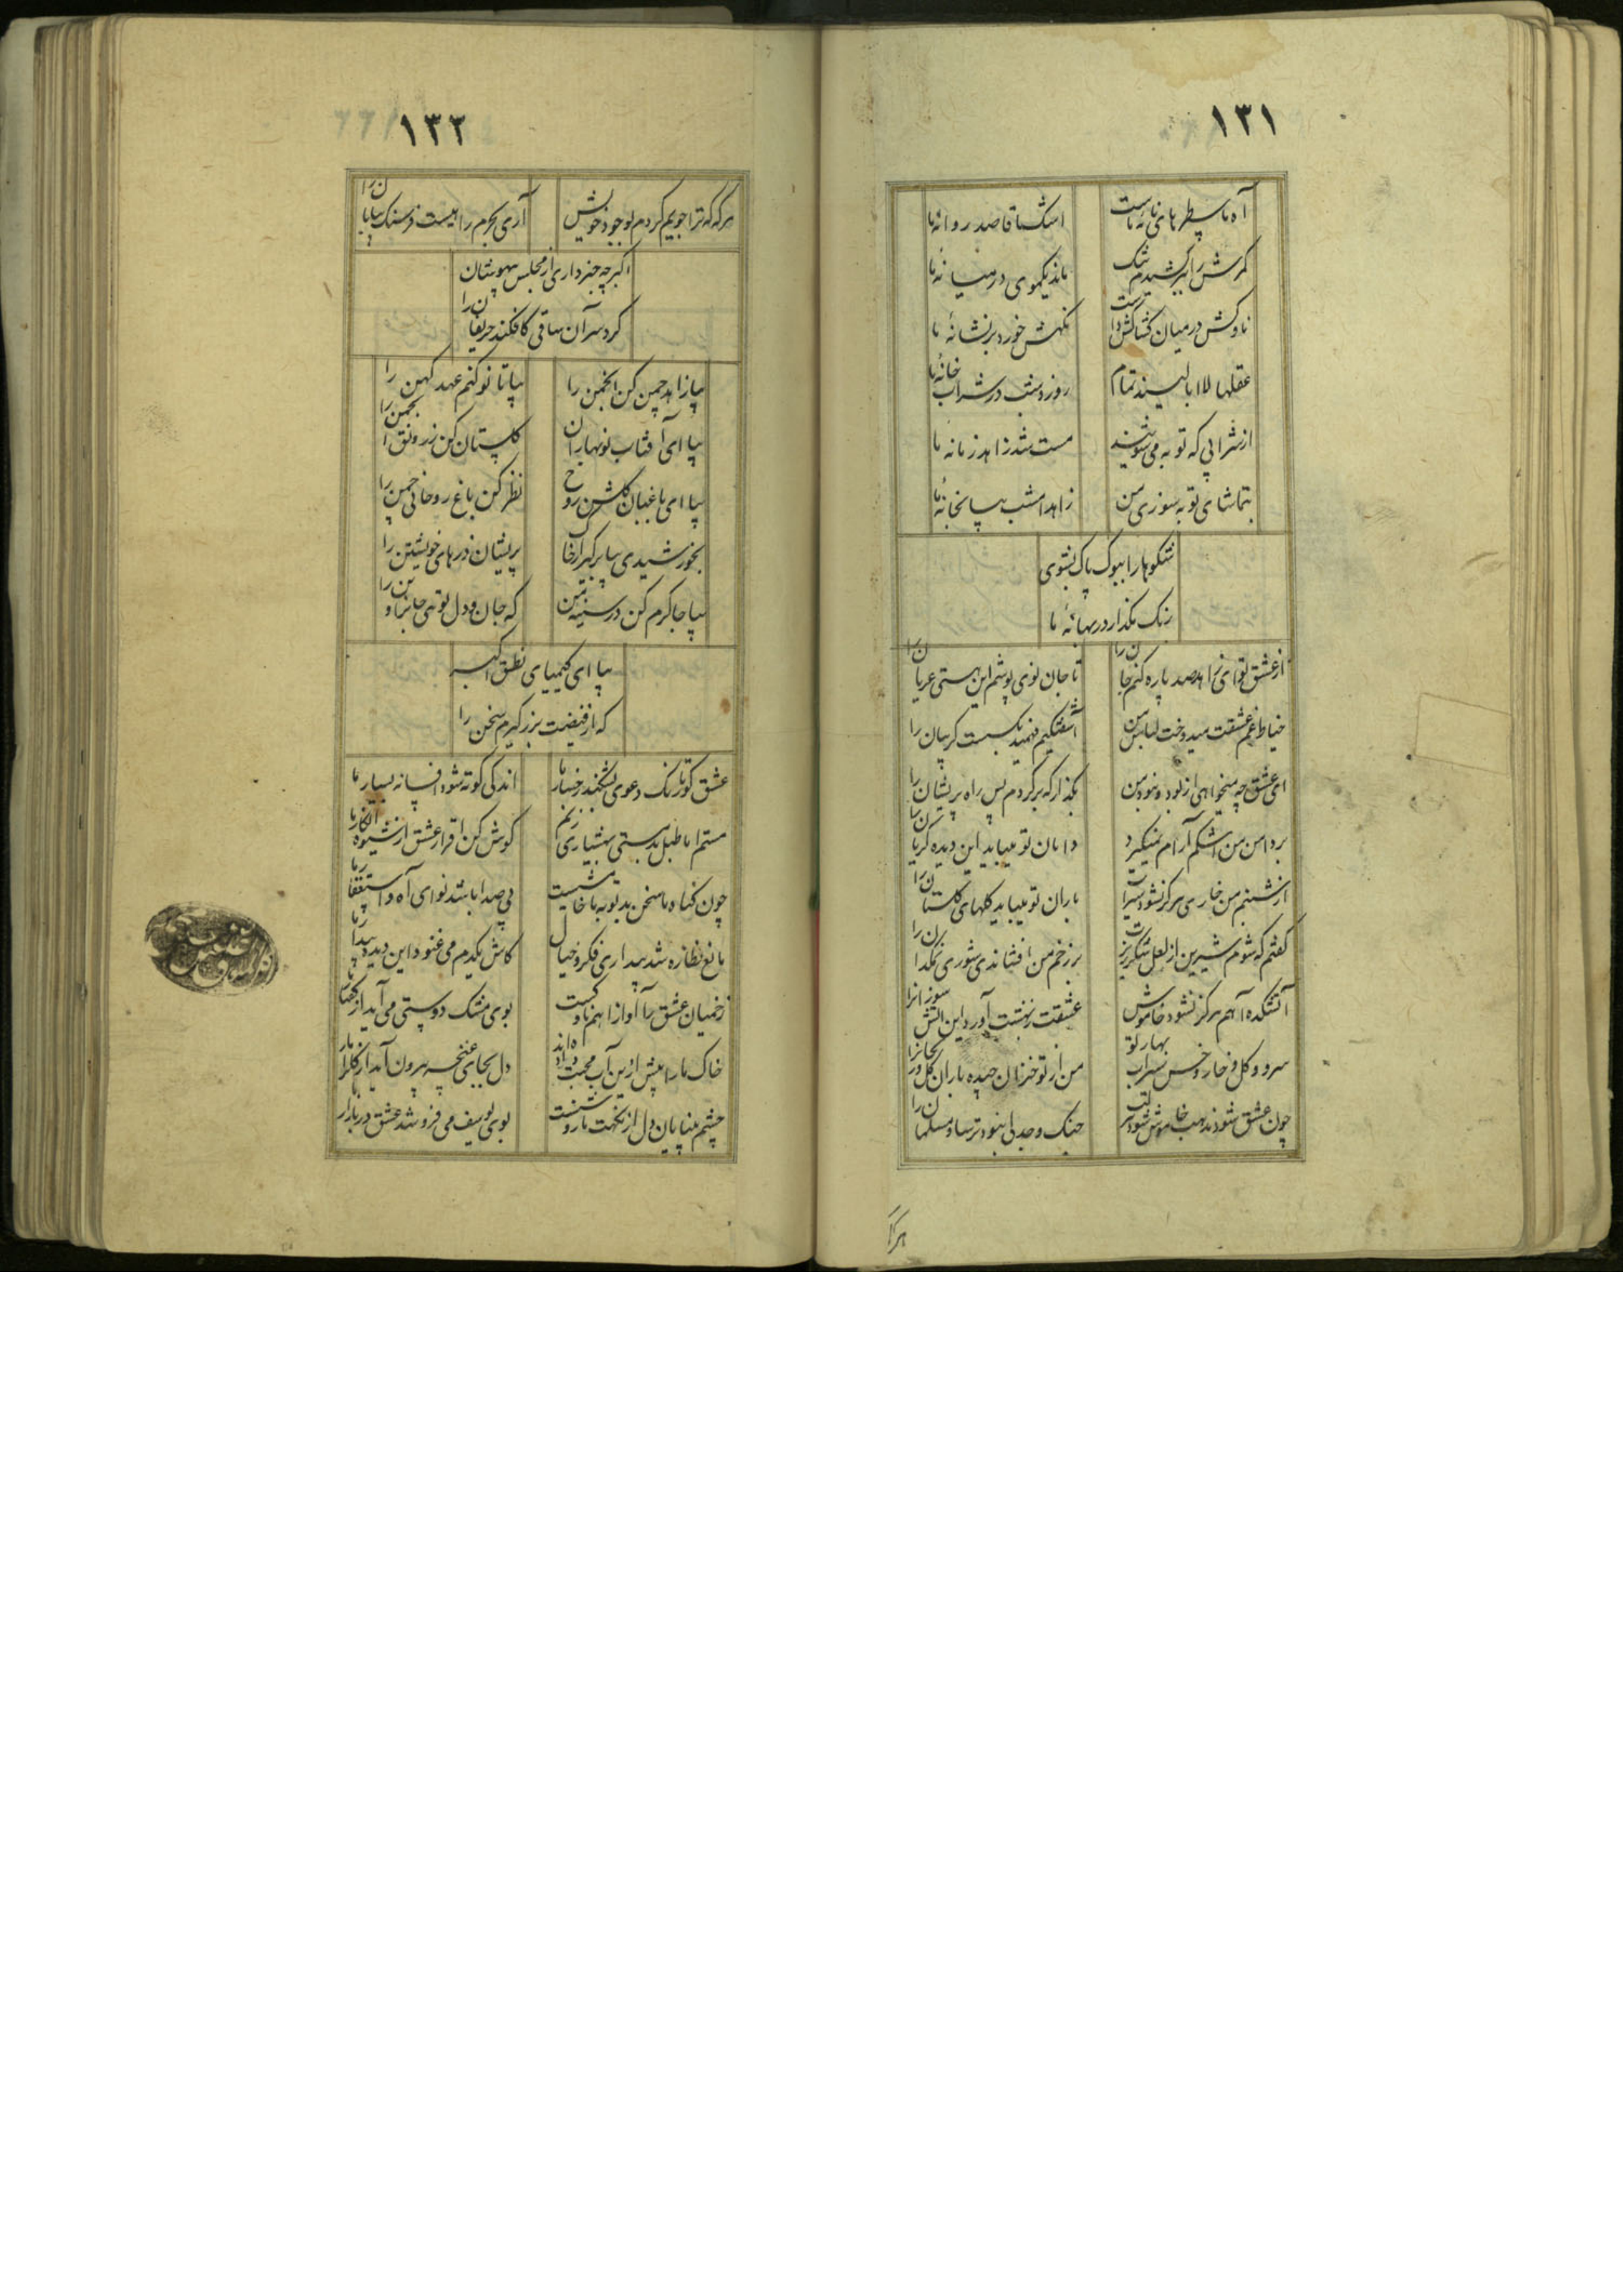 ١٣١
آه ما سطرهای نامه ماست
اشک ما قاصد روانهٔ ما
کمرش را بر کشیدم تنگ
ماند یکموی در میانهٔ ما
ناوکش در میان کشاکش داشت
نگهش خورد بر نشانهٔ ما
عقلها لاابالیند تمام
روز و شب در شرابخانهٔ ما
از شرابی که توبه می‌نوشند
مست شد زاهد زمانهٔ ما
بتماشای توبه سوزی من
زاهد امشب بیا بخانهٔ ما
شکوها را پاک بشوی
رنک مگذار در بهانهٔ ما
از عشق تو ای زاهد صد پاره کنم جانرا
تا جان نوی پوشم این هستی عریانرا
خیاط غم عشقت میدوخت لباس من
آشفتگیم فهمید نگسست گریبان را
ای عشق چه میخواهی از بود و نبود من
بگذار که برگردم پس راه پریشان را
بر دامن من اشکم آرام نمیگیرد
دامان تو میباید این دیده گریانرا
از شبنم من خاری هرگز نشود سیراب
باران تو میباید گلهای گلستانرا
گفتم که شوم شیرین از لعل شکرریزت
بر زخم من افشاندی شوری نمکدانرا
آتشکدهٔ آهم هرگز نشود خاموش
عشقت ز بهشت آورد این آتش سوزانرا
سرو و گل و خار و خس سیراب بهار تو
من از تو خزان چیده باران گل و ریحانرا
چون عشق شود مذهب خاموش شود مکتب
جنگ و جدلی نبود ترسا و مسلمانرا
هرگه
١٣٢
هرگه که ترا جویم گردم بوجود خویش
آری بحرم راهیست فرسنک بیابانرا
اکبر چه خبر داری از مجلس بیهوشان
کردسر آن ساقی کافکند حریفانرا
بیا زاهد چمن کن انجمن را
بیا تا نو کنم عهد کهن را
بیا ای آفتاب نوبهاران
گلستان کن ز رونق انجمن را
بیا ای باغبان گلشن روح
نظر کن باغ روحانی چمن را
بخورشیدی بیا برگیر از خاک
پریشان ذرهای خویشتن را
بیا جا گرم کن در سینه من
که جان و دل توئی جان و بدن را
بیا ای کیمیای نطق اکبر
که از فیضت بزر گیرم سخن را
عشق کو تا رنگ دعوی بشکند رخسار ما
اندکی کوته شود افسانه بسیار ما
مستم اما طبل بدمستی بهشیاری زنم
گوش کن اقرار عشق از شیوه انکار ما
چون گناه ما سخن بد توبه ما خامشیست
بی صدا باشد نوای آه و استغفار ما
مانع نظاره شد بیداری فکر و خیال
کاش یکدم می‌غنود این دیده بیدار ما
زخمیان عشق را آواز اهم ناوکست
بوی مشک دوستی می‌آید از گفتار ما
خاک ما را پیش ازین آب محبت داده‌اند
دل بجای غنچه بیرون آید از گلزار ما
چشم بینایان دل از نکهت ما روشنست
بوی یوسف می‌فروشد عشق در بازار ما